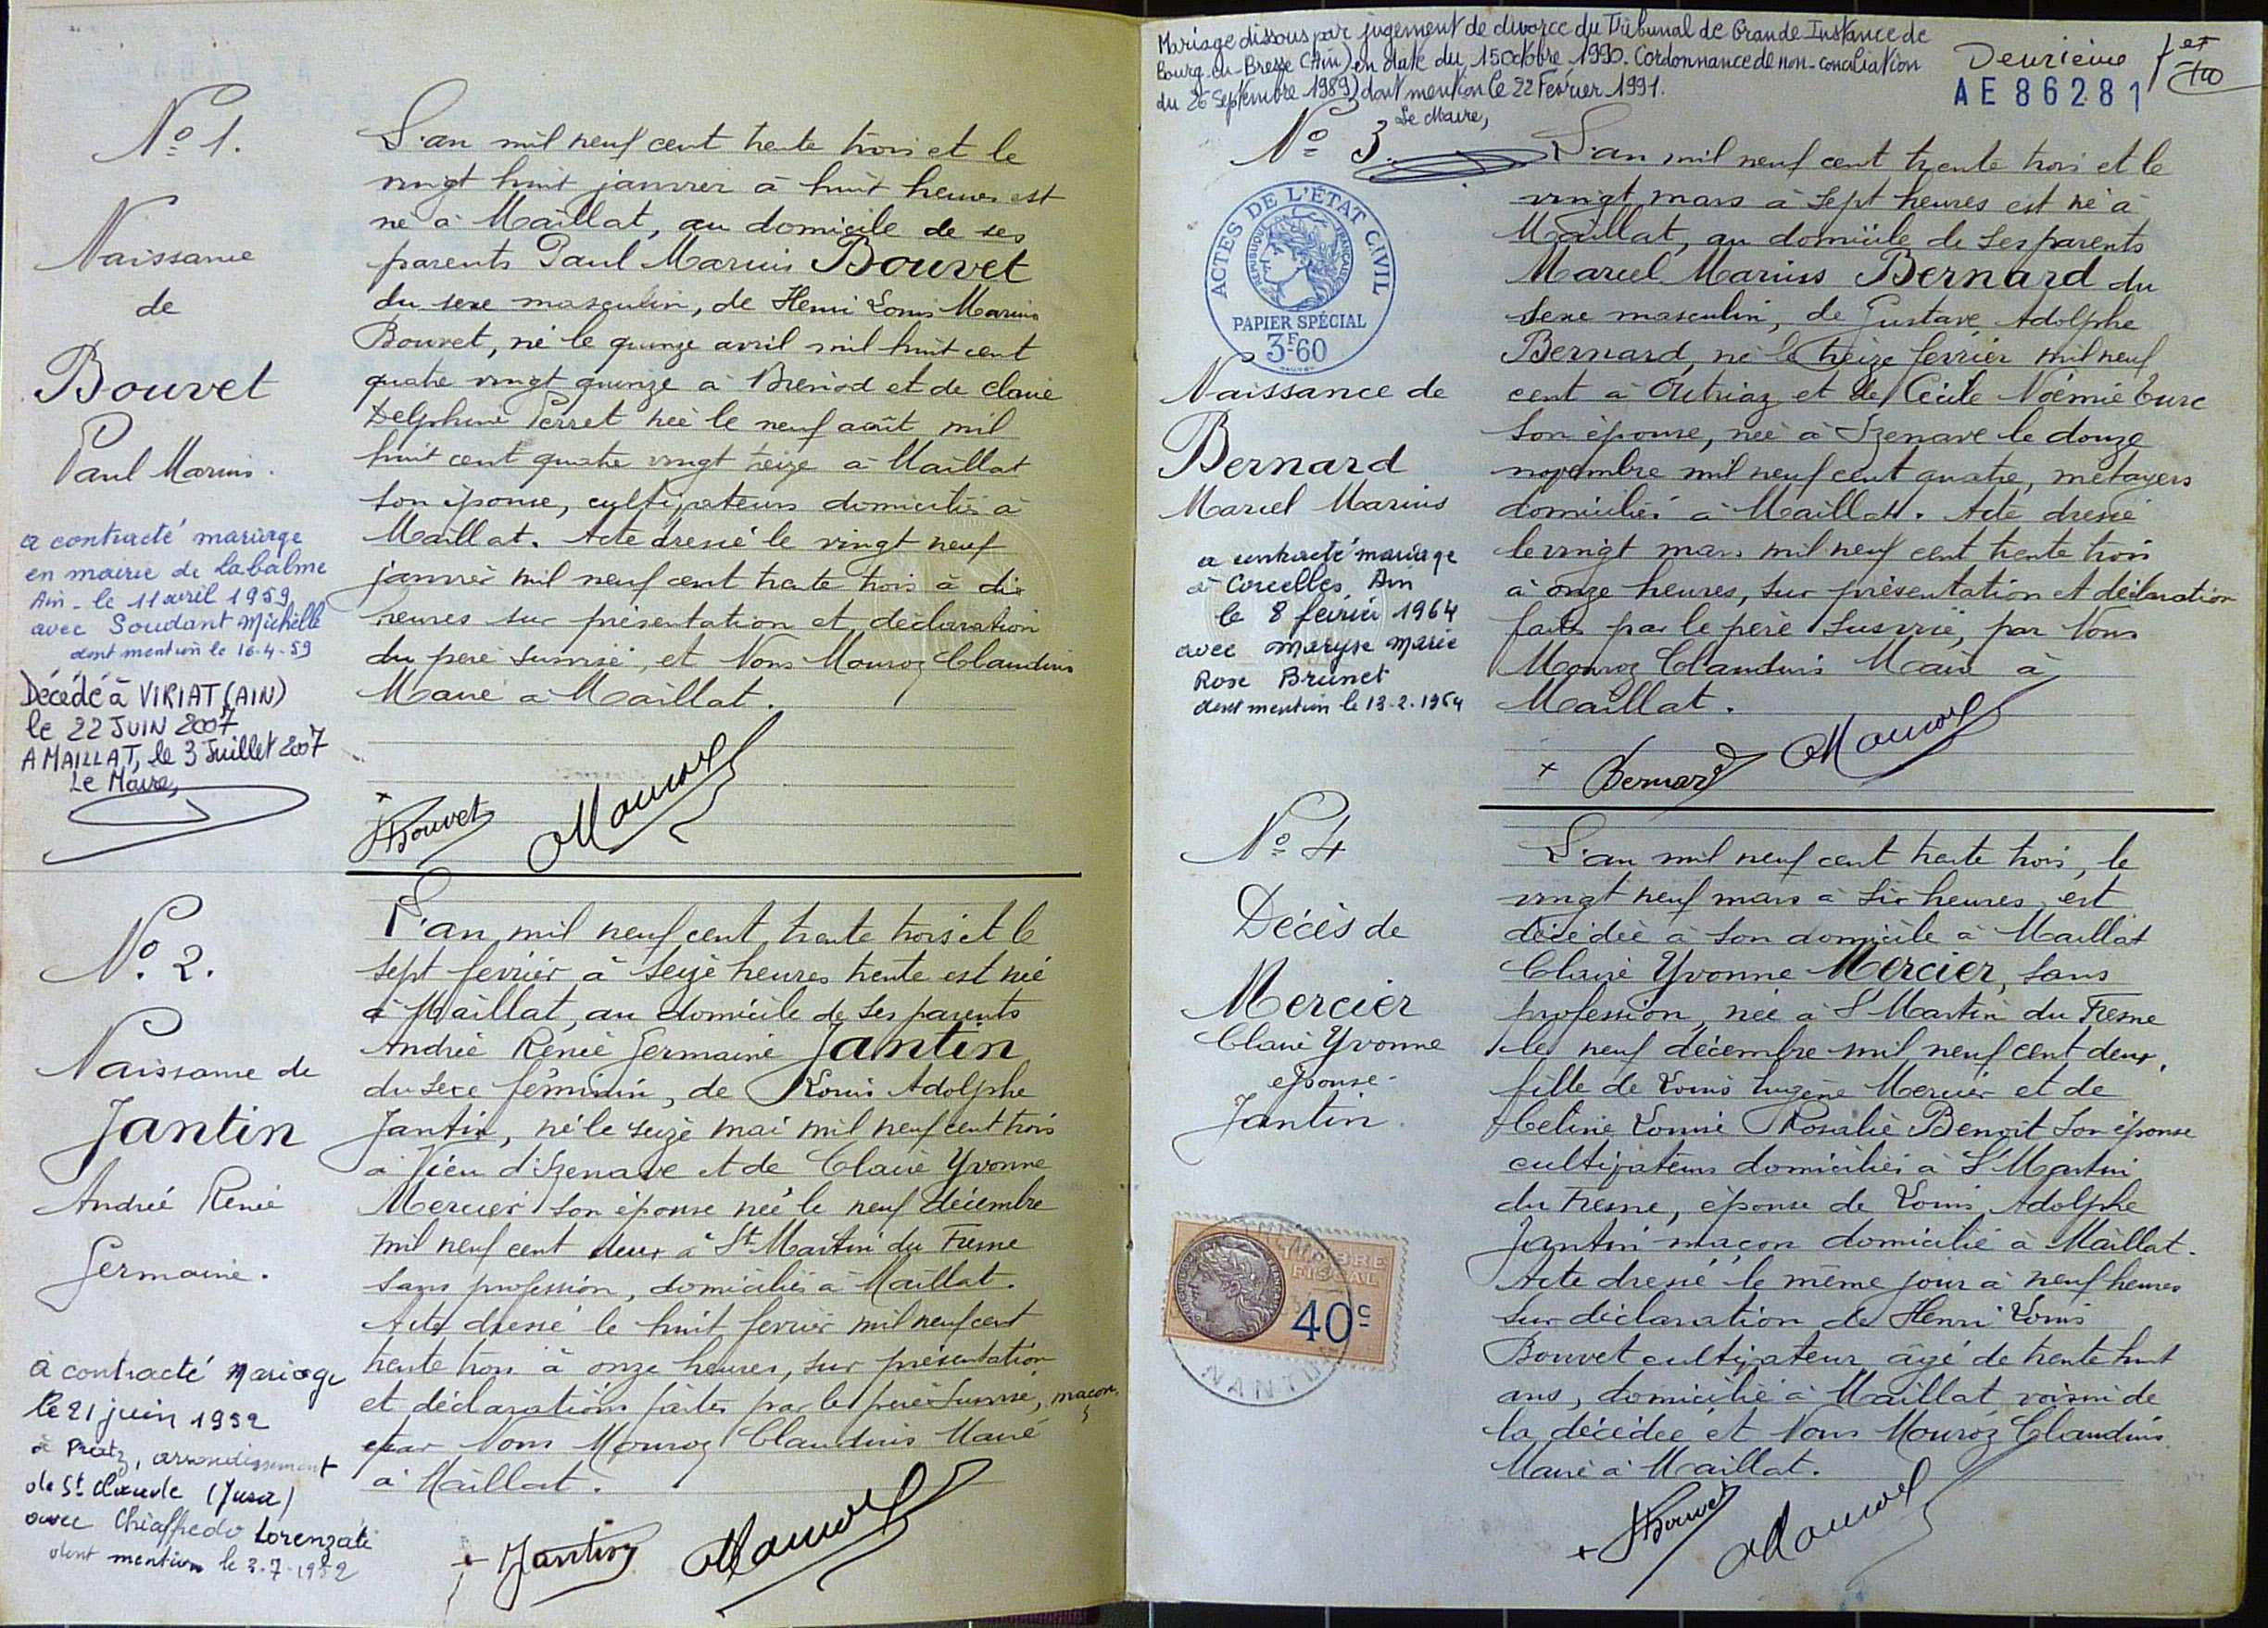 N° 1.
Naissance
de
Bouvet
Paul Marius.
a contracté mariage
en mairie de Labalme
Ain - le 11 avril 1959
avec Soudant Michelle
dont mention le 16-4-59
Décédé à VIRIAT (AIN)
le 22 JUIN 2007
A MAILLAT, le 3 Juillet 2007
Le Maire,
L'an mil neuf cent trente trois et le
vingt huit janvier à huit heures est
né à Maillat, au domicile de ses
parents Paul Marius Bouvet
du sexe masculin, de Henri Louis Marius
Bouvet, né le quinze avril mil huit cent
quatre vingt quinze à Brénod et de Claire
Delphine Perret née le neuf août mil
huit cent quatre vingt treize à Maillat
son épouse, cultivateurs domiciliés à
Maillat. Acte dressé le vingt neuf
janvier mil neuf cent trente trois à dix
heures sur présentation et déclaration
du père susvisé, et Nous Mouroz Claudius
Maire à Maillat.
+ HBouvet Mouroz
N° 2.
Naissance de
Jantin
Andrée Renée
Germaine.
a contracté mariage
le 21 juin 1952
à Pratz, arrondissement
de St Claude (Jura)
avec Chiaffredo Lorenzati
dont mention le 3-7-1952
L'an mil neuf cent trente trois et le
sept fevrier à seize heures trente est née
à Maillat, au domicile de ses parents
Andrée Renée Germaine Jantin
du sexe féminin, de Louis Adolphe
Jantin, né le seize mai mil neuf cent trois
à Vieu d'Izenave et de Claire Yvonne
Mercier son épouse née le neuf décembre
mil neuf cent deux à St Martin du Fresne
sans profession, domiciliés à Maillat.
Acte dressé le huit fevrier mil neuf cent
trente trois à onze heures, sur présentation
et déclaration faites par le père susvisé, maçon,
et par Nous Mouroz Claudius Maire
à Maillat.
+ Jantin Mouroz
Mariage dissous par jugement de divorce du Tribunal de Grande Instance de
Bourg-en-Bresse (Ain) en date du 15 octobre 1990. (ordonnance de non-conciliation
du 26 Septembre 1989) dont mention le 22 Février 1991.
Le Maire,
Deuxième
AE 86281
N° 3
ACTES DE L'ÉTAT CIVIL
RÉPUBLIQUE FRANÇAISE
PAPIER SPÉCIAL
3F60
Naissance de
Bernard
Marcel Marius
a contracté mariage
à Corcelles, Ain
le 8 février 1964
avec Maryse Marie
Rose Brunet
dont mention le 13-2-1964
L'an mil neuf cent trente trois et le
vingt mars à sept heures est né à
Maillat, au domicile de ses parents
Marcel Marius Bernard du
sexe masculin, de Gustave Adolphe
Bernard, né le treize fevrier mil neuf
cent à Outriaz et de Cécile Noémie Turc
son épouse, née à Izenave le douze
novembre mil neuf cent quatre, métayers
domiciliés à Maillat. Acte dressé
le vingt mars mil neuf cent trente trois
à onze heures, sur présentation et déclaration
faites par le père susvisé, par Nous
Mouroz Claudius Maire à
Maillat.
+ Bernard Mouroz
N° 4
Décès de
Mercier
Claire Yvonne
épouse
Jantin.
TIMBRE
FISCAL
40c
NANTUA
L'an mil neuf cent trente trois, le
vingt neuf mars à six heures, est
décédée à son domicile à Maillat
Claire Yvonne Mercier, sans
profession, née à St Martin du Fresne
le neuf décembre mil neuf cent deux,
fille de Louis Eugène Mercier et de
Céline Louise Rosalie Benoît son épouse
cultivateurs domiciliés à St Martin
du Fresne, épouse de Louis Adolphe
Jantin maçon domicilié à Maillat.
Acte dressé le même jour à neuf heures
sur déclaration de Henri Louis
Bouvet cultivateur âgé de trente huit
ans, domicilié à Maillat, voisin de
la décédée et Nous Mouroz Claudius
Maire à Maillat.
+ HBouvet Mouroz